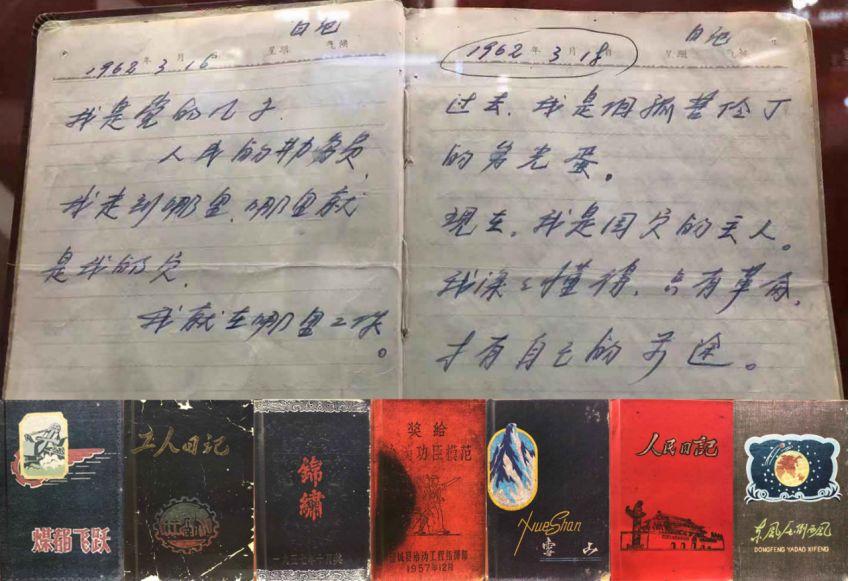 日记
1962年 3月 16 星期 气候
我是党的儿子.
人民的勤务员,
我走到哪里,哪里就
是我的家,
我就在哪里工作。
日记
1962年 3月 18日 星期 气候
过去,我是個孤苦伶丁
的穷光蛋。
现在,我是国家的主人。
我深々懂得,只有革命,
才有自己的前途。
煤都飞跃
工人日记
錦繡
一九五七年十月奖
奖给
功臣模范
1957年12月
XueShan
雪山
人民日記
东风压倒西风
DONGFENG YADAO XIFENG